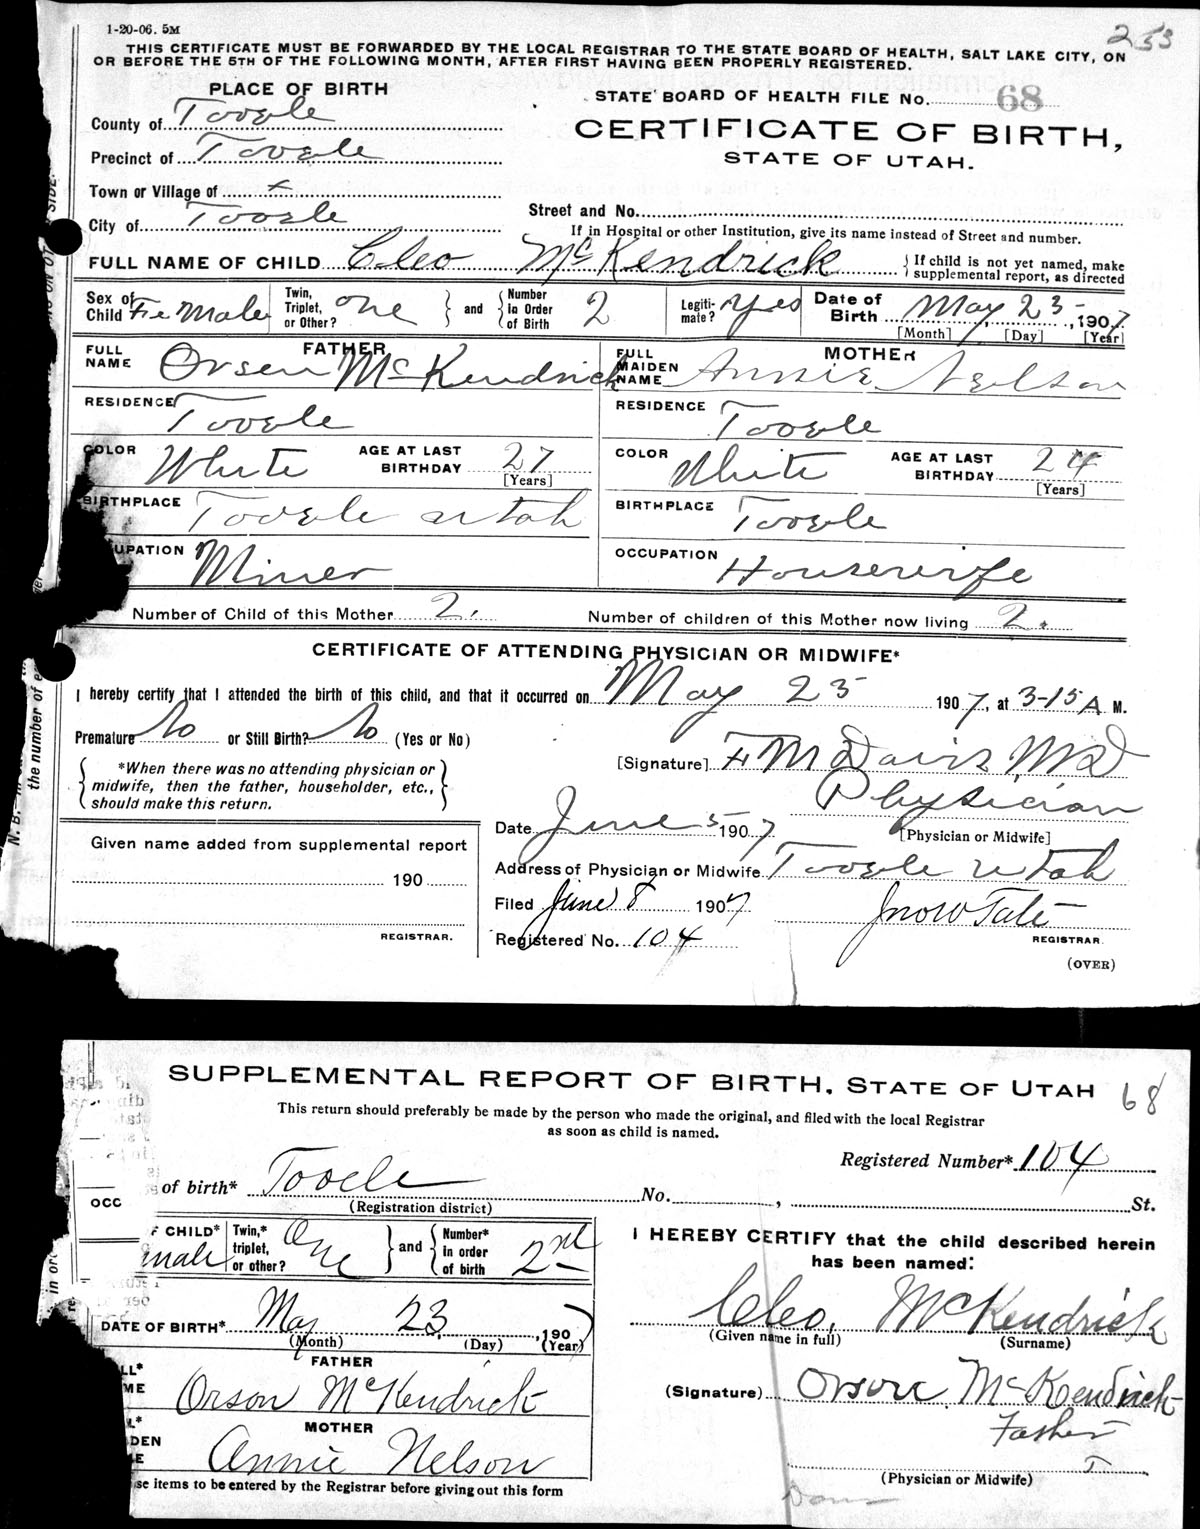 1-20-06. 5M
253
THIS CERTIFICATE MUST BE FORWARDED BY THE LOCAL REGISTRAR TO THE STATE BOARD OF HEALTH, SALT LAKE CITY, ON
OR BEFORE THE 5TH OF THE FOLLOWING MONTH, AFTER FIRST HAVING BEEN PROPERLY REGISTERED.
PLACE OF BIRTH
STATE BOARD OF HEALTH FILE No. 68
County of Tooele
CERTIFICATE OF BIRTH,
STATE OF UTAH.
Precinct of Tooele
Town or Village of x
City of Tooele
Street and No.
If in Hospital or other Institution, give its name instead of Street and number.
FULL NAME OF CHILD Cleo McKendrick
If child is not yet named, make
supplemental report, as directed
Sex of Child Fe Male Twin, Triplet, or Other? one and Number in Order of Birth 2 Legiti- mate? yes Date of Birth May 23 , 1907
[Month] [Day] [Year]
FATHER
MOTHER
FULL NAME Orsen McKendrick
FULL MAIDEN NAME Annie Neilson
RESIDENCE Tooele
RESIDENCE Tooele
COLOR White AGE AT LAST BIRTHDAY 27 [Years]
COLOR White AGE AT LAST BIRTHDAY 24 [Years]
BIRTHPLACE Tooele utah
BIRTHPLACE Tooele
UPATION Miner
OCCUPATION Housewife
Number of Child of this Mother 2. Number of children of this Mother now living 2.
CERTIFICATE OF ATTENDING PHYSICIAN OR MIDWIFE*
I hereby certify that I attended the birth of this child, and that it occurred on May 23 1907, at 3-15 A M.
Premature No or Still Birth? No (Yes or No)
*When there was no attending physician or
midwife, then the father, householder, etc.,
should make this return.
[Signature] F M Davis, MD
Physician
[Physician or Midwife]
Date June 5 1907
Given name added from supplemental report
190
REGISTRAR.
Address of Physician or Midwife Tooele utah
Filed June 8 1907
Jno W Tate
REGISTRAR.
Registered No. 104
(OVER)
N. B.
the number of
SUPPLEMENTAL REPORT OF BIRTH, STATE OF UTAH 68
This return should preferably be made by the person who made the original, and filed with the local Registrar
as soon as child is named.
Registered Number* 104
OCC
of birth* Tooele No. , St.
(Registration district)
CHILD* male Twin,* triplet, or other? One and Number* in order of birth 2nd
DATE OF BIRTH* May 23, , 1907
(Month) (Day) (Year)
FATHER
Orson McKendrick
MOTHER
DEN
Annie Nelson
se items to be entered by the Registrar before giving out this form
I HEREBY CERTIFY that the child described herein
has been named:
Cleo, McKendrick
(Given name in full) (Surname)
(Signature) Orson McKendrick
Father
(Physician or Midwife)